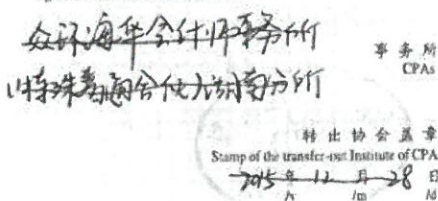 众环海华会计师事务所
事务所
CPAs
(特殊普通合伙)湖南分所
转出协会盖章
Stamp of the transfer-out Institute of CPA
2015年12月28日
/y /m /d